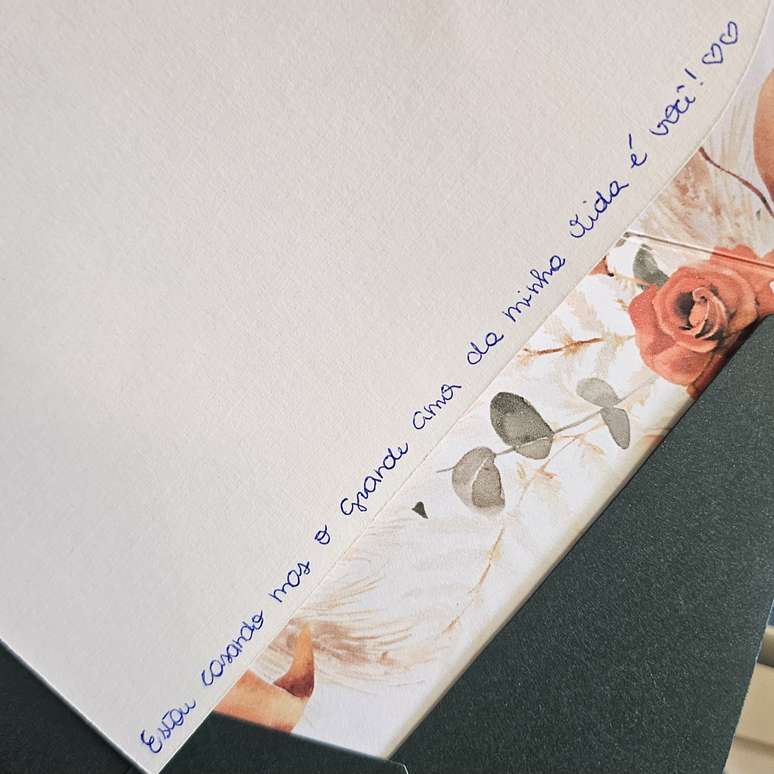 Estou casando mas o grande amor da minha vida é você! ♡♡